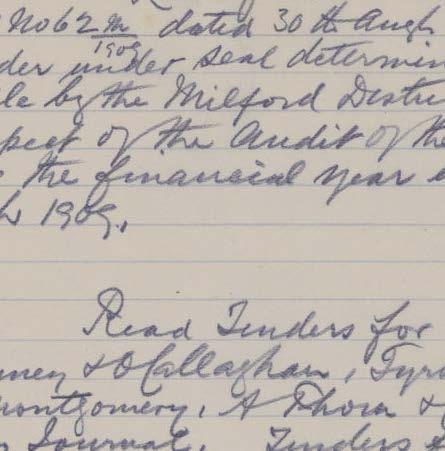 No 62 M/1909 dated 30th Augt
der under seal determin
le by the Milford Distri
pect of the Audit of the
the financial year e
1909.
Read Tenders for
ney & O'Callaghan, Tyr
ontgomery, A Thom &
Journal. Tenders